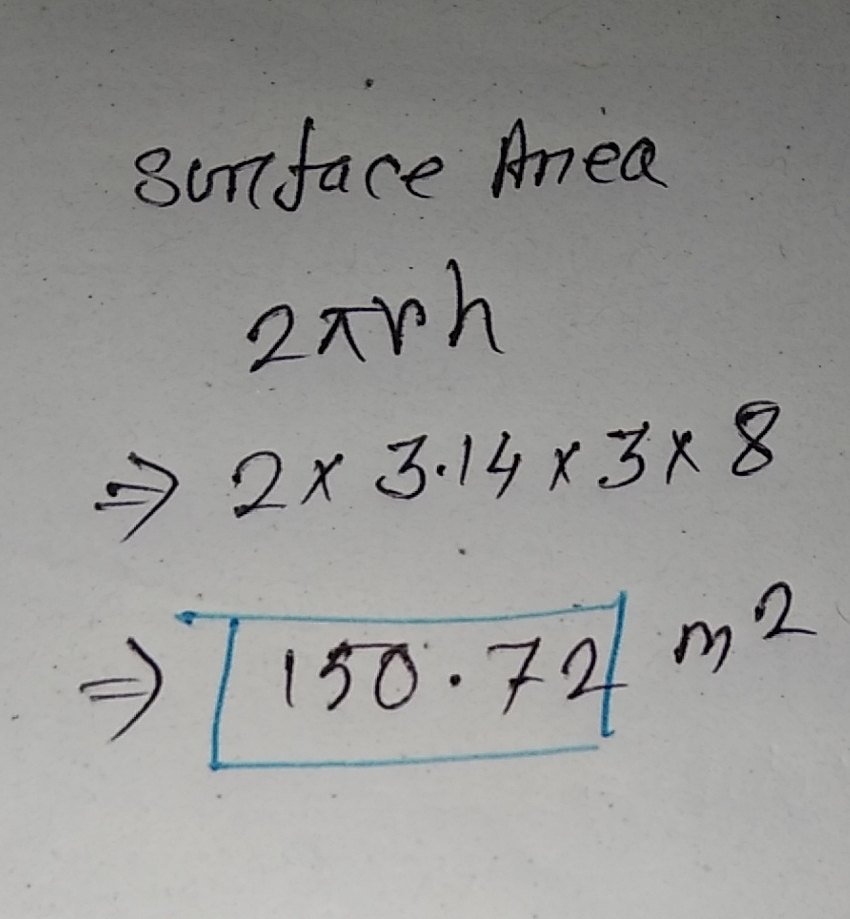 Surface Area
2πrh
⇒ 2 x 3.14 x 3 x 8
⇒ 150.72 m²